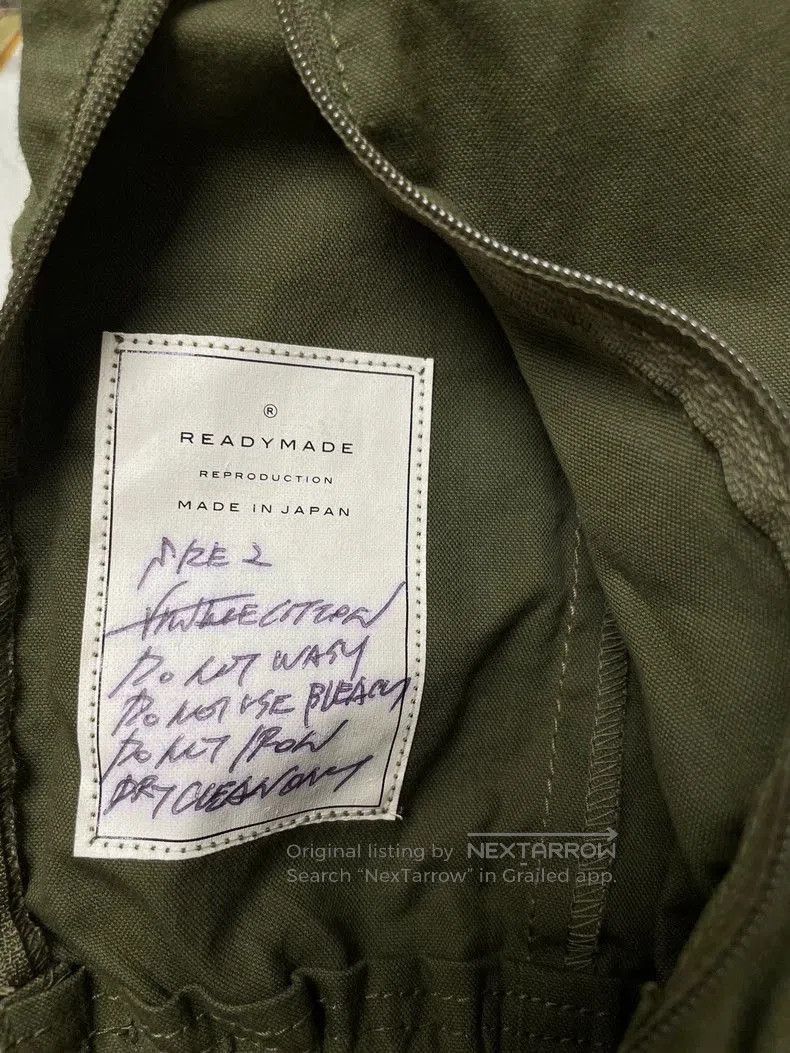 ®
READYMADE
REPRODUCTION
MADE IN JAPAN
SIZE 2
COTTON
DO NOT WASH
DO NOT USE BLEACH
DO NOT IRON
DRY CLEAN ONLY
Original listing by NEXTARROW
Search “NexTarrow” in Grailed app.